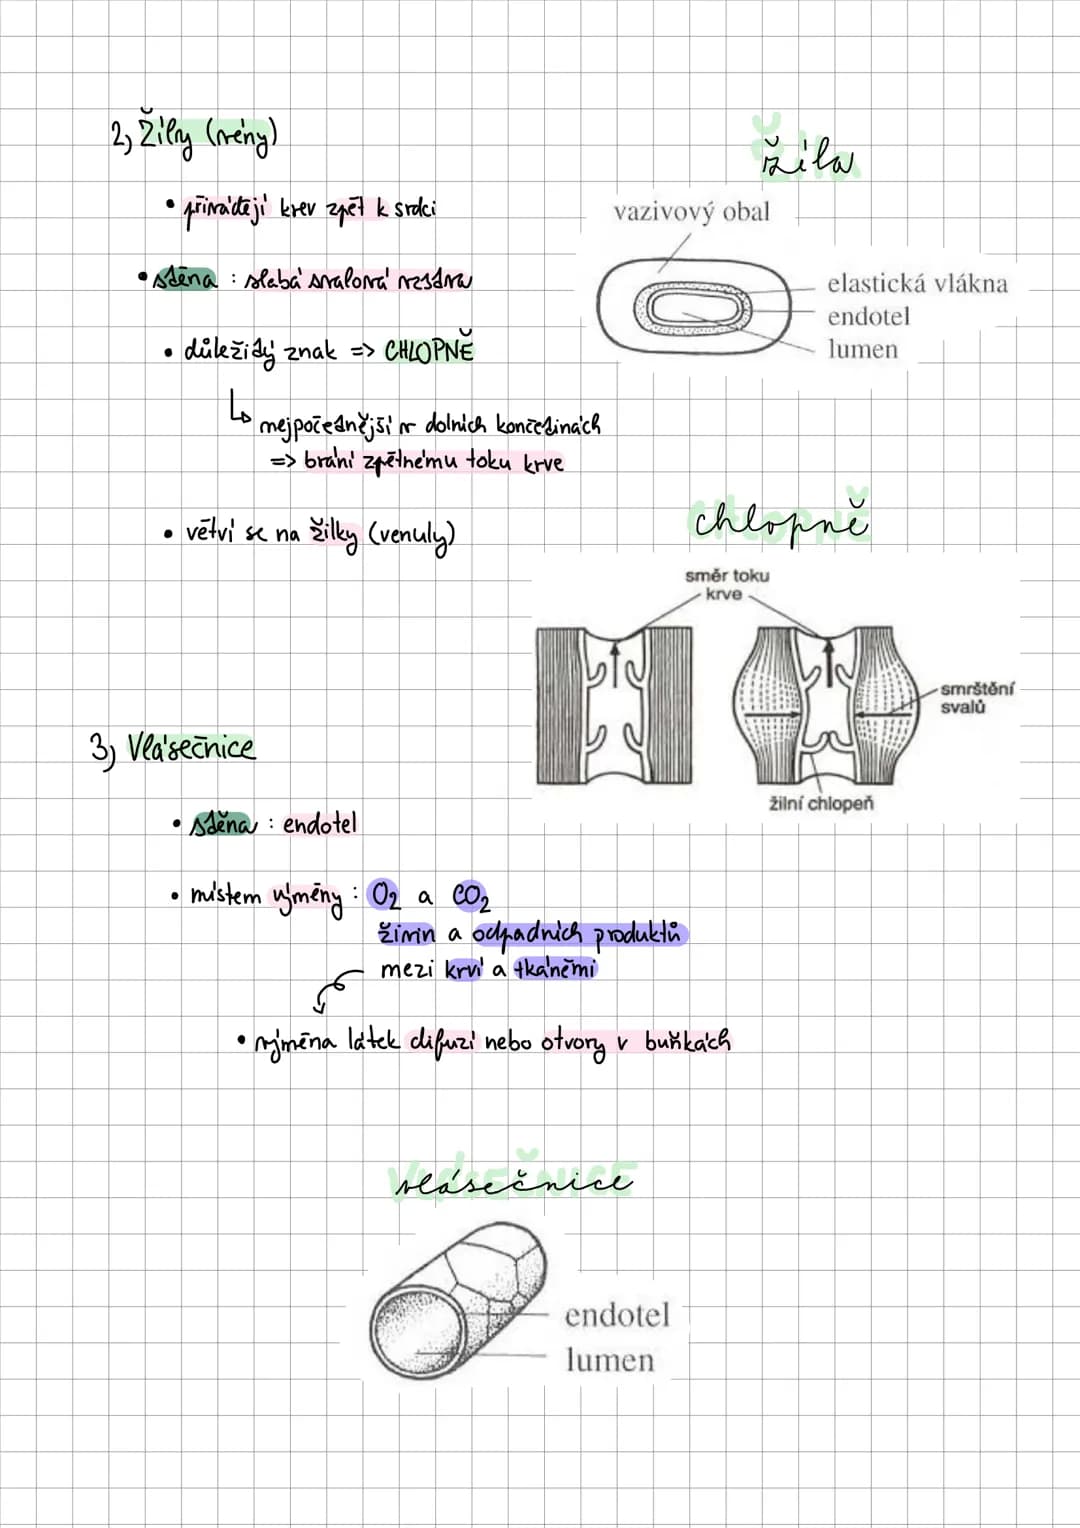 2) Žíly (vény)
• přivádějí krev zpět k srdci
• stěna : slabá svalová vrstva
• důležitý znak => CHLOPNĚ
nejpočetnější v dolních končetinách
=> brání zpětnému toku krve
• větví se na žilky (venuly)
žíla
vazivový obal
elastická vlákna
endotel
lumen
chlopně
směr toku
krve
smrštění
svalů
žilní chlopeň
3) Vlásečnice
• stěna : endotel
• místem výměny : O₂ a CO₂
živin a odpadních produktů
mezi krví a tkáněmi
• výměna látek difuzí nebo otvory v buňkách
vlásečnice
endotel
lumen